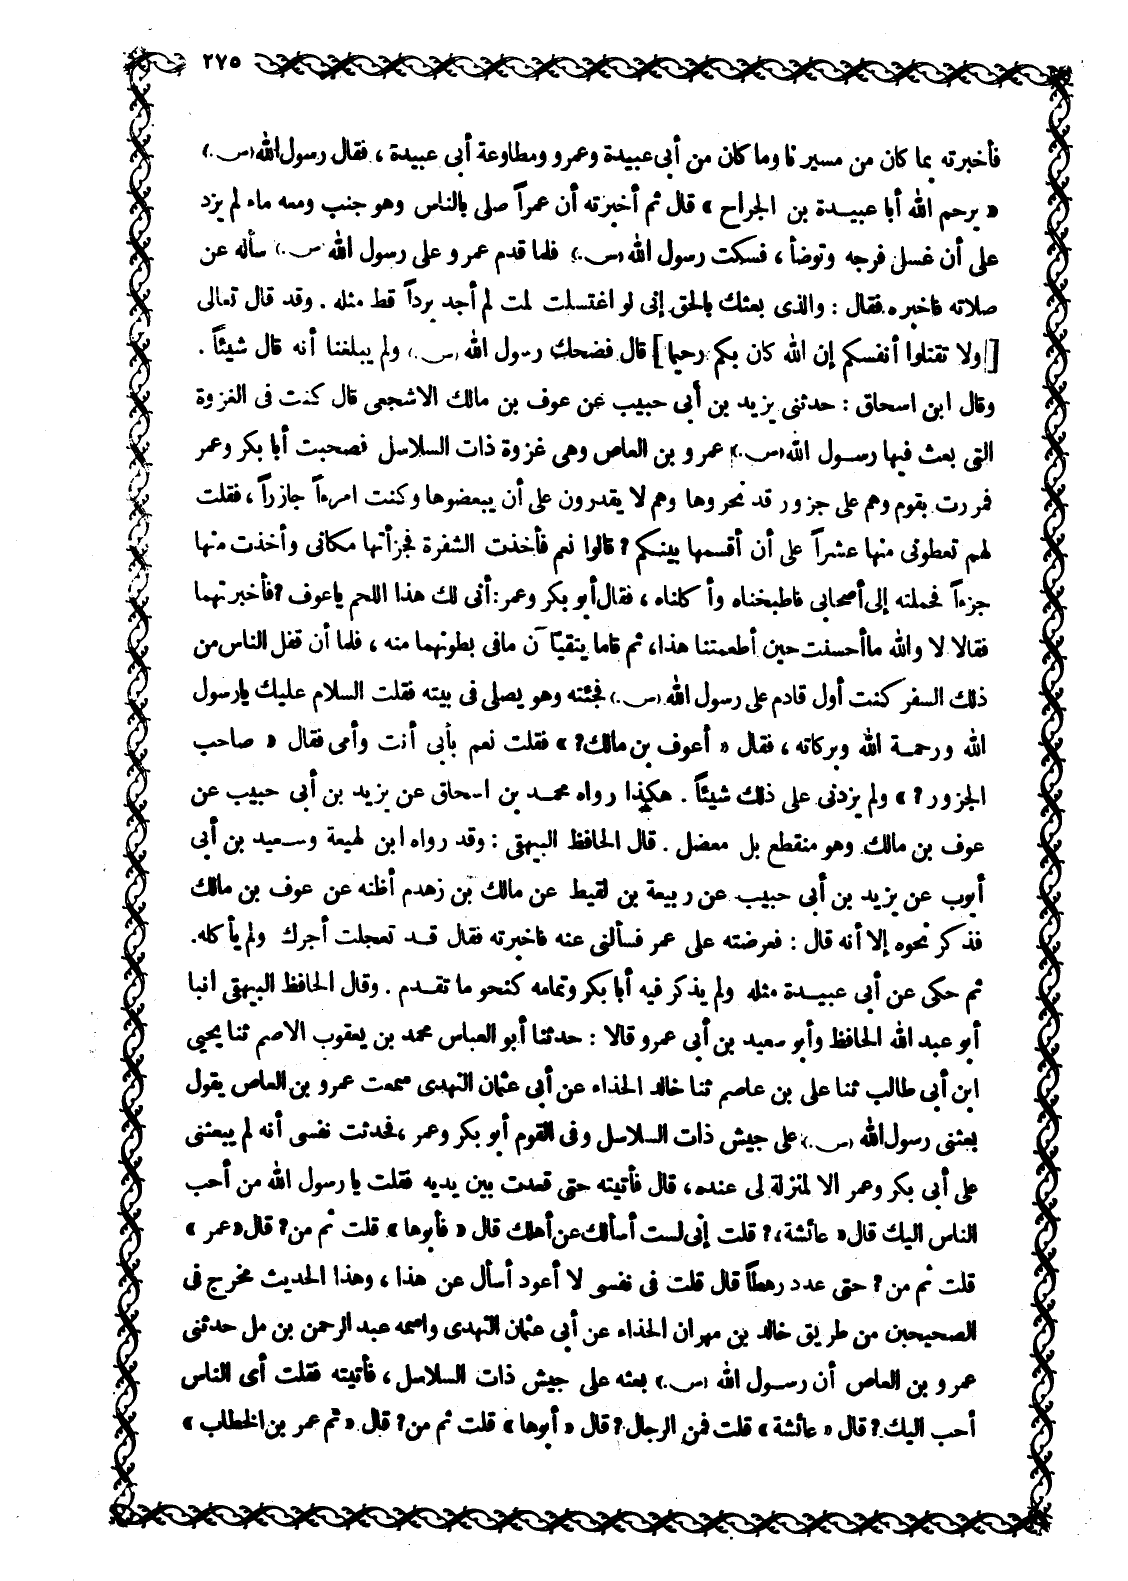 ٢٧٥
فأخبرته بما كان من مسيرنا وما كان من أبى عبيدة وعمرو ومطاوعة أبى عبيدة ، فقال رسول الله (س.)
« يرحم الله أبا عبيـدة بن الجراح » قال ثم أخبرته أن عمراً صلى بالناس وهو جنب ومعه ماء لم يزد
على أن غسل فرجه وتوضأ ، فسكت رسول الله (س.) فلما قدم عمرو على رسول الله (س.) سأله عن
صلاته فاخبره فقال : والذى بعثك بالحق إنى لو اغتسلت لمت لم أجد برداً قط مثله . وقد قال تعالى
[ولا تقتلوا أنفسكم إن الله كان بكم رحيما] قال فضحك رسول الله (س.) ولم يبلغنا أنه قال شيئاً .
وقال ابن اسحاق : حدثنى يزيد بن أبى حبيب عن عوف بن مالك الاشجعى قال كنت فى الغزوة
التى بعث فيها رسـول الله (س.) عمرو بن العاص وهى غزوة ذات السلاسل فصحبت أبا بكر وعمر
فمررت بقوم وهم على جزور قد نحروها وهم لا يقدرون على أن يبعضوها وكنت امرءاً جازراً ، فقلت
لهم تعطونى منها عشراً على أن أقسمها بينكم ? قالوا نعم فأخذت الشفرة فجزأتها مكانى وأخذت منها
جزءاً فحملته إلى أصحابى فاطبخناه وأكلناه ، فقال أبو بكر وعمر : أنى لك هذا اللحم يا عوف ? فأخبرتهما
فقالا لا والله ما أحسنت حين أطعمتنا هذا، ثم قاما يتقيآن مافى بطونهما منه ، فلما أن قفل الناس من
ذلك السفر كنت أول قادم على رسول الله (س.) فجئته وهو يصلى فى بيته فقلت السلام عليك يارسول
الله ورحمـة الله وبركاته ، فقال « أعوف بن مالك ? » فقلت نعم بأبى أنت وأمى فقال « صاحب
الجزور ? » ولم يزدنى على ذلك شيئاً . هكذا رواه محمـد بن اسحاق عن يزيد بن أبى حبيب عن
عوف بن مالك وهو منقطع بل معضل . قال الحافظ البيهقى : وقد رواه ابن لهيعة وسـعيد بن أبى
أيوب عن يزيد بن أبى حبيب عن ربيعة بن لقيط عن مالك بن زهدم أظنه عن عوف بن مالك
فذكر نحوه إلا أنه قال : فعرضته على عمر فسألنى عنه فاخبرته فقال قـد تعجلت أجرك ولم يأكله.
ثم حكى عن أبى عبيـدة مثله ولم يذكر فيه أبا بكر وتمامه كنحو ما تقـدم . وقال الحافظ البيهقى انبا
أبو عبد الله الحافظ وأبو سعيد بن أبى عمرو قالا : حدثنا أبو العباس محمد بن يعقوب الاصم ثنا يحيى
ابن أبى طالب ثنا على بن عاصم ثنا خالد الحذاء عن أبى عثمان النهدى سمعت عمرو بن العاص يقول
بعثنى رسول الله (س.) على جيش ذات السلاسل وفى القوم أبو بكر وعمر ، فحدثت نفسى أنه لم يبعثنى
على أبى بكر وعمر الا لمنزلة لى عنده، قال فأتيته حتى قعدت بين يديه فقلت يا رسول الله من أحب
الناس اليك قال « عائشة، ? قلت إنى لست أسألك عن أهلك قال « فأبوها » قلت ثم من? قال « عمر »
قلت ثم من ? حتى عدد رهطاً قال قلت فى نفسى لا أعود أسأل عن هذا ، وهذا الحديث مخرج فى
الصحيحين من طريق خالد بن مهران الحذاء عن أبى عثمان النهدى واسمه عبد الرحمن بن مل حدثنى
عمرو بن العاص أن رسـول الله (س.) بعثه على جيش ذات السلاسل ، فأتيته فقلت أى الناس
أحب اليك ? قال « عائشة » قلت فمن الرجال ? قال « أبوها » قلت ثم من ? قال « ثم عمر بن الخطاب »